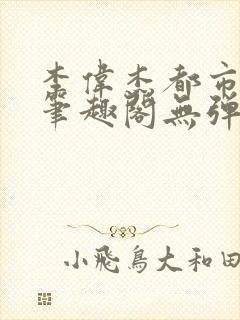 李偉杰都市
筆趣閣無彈
小飛鳥大和田